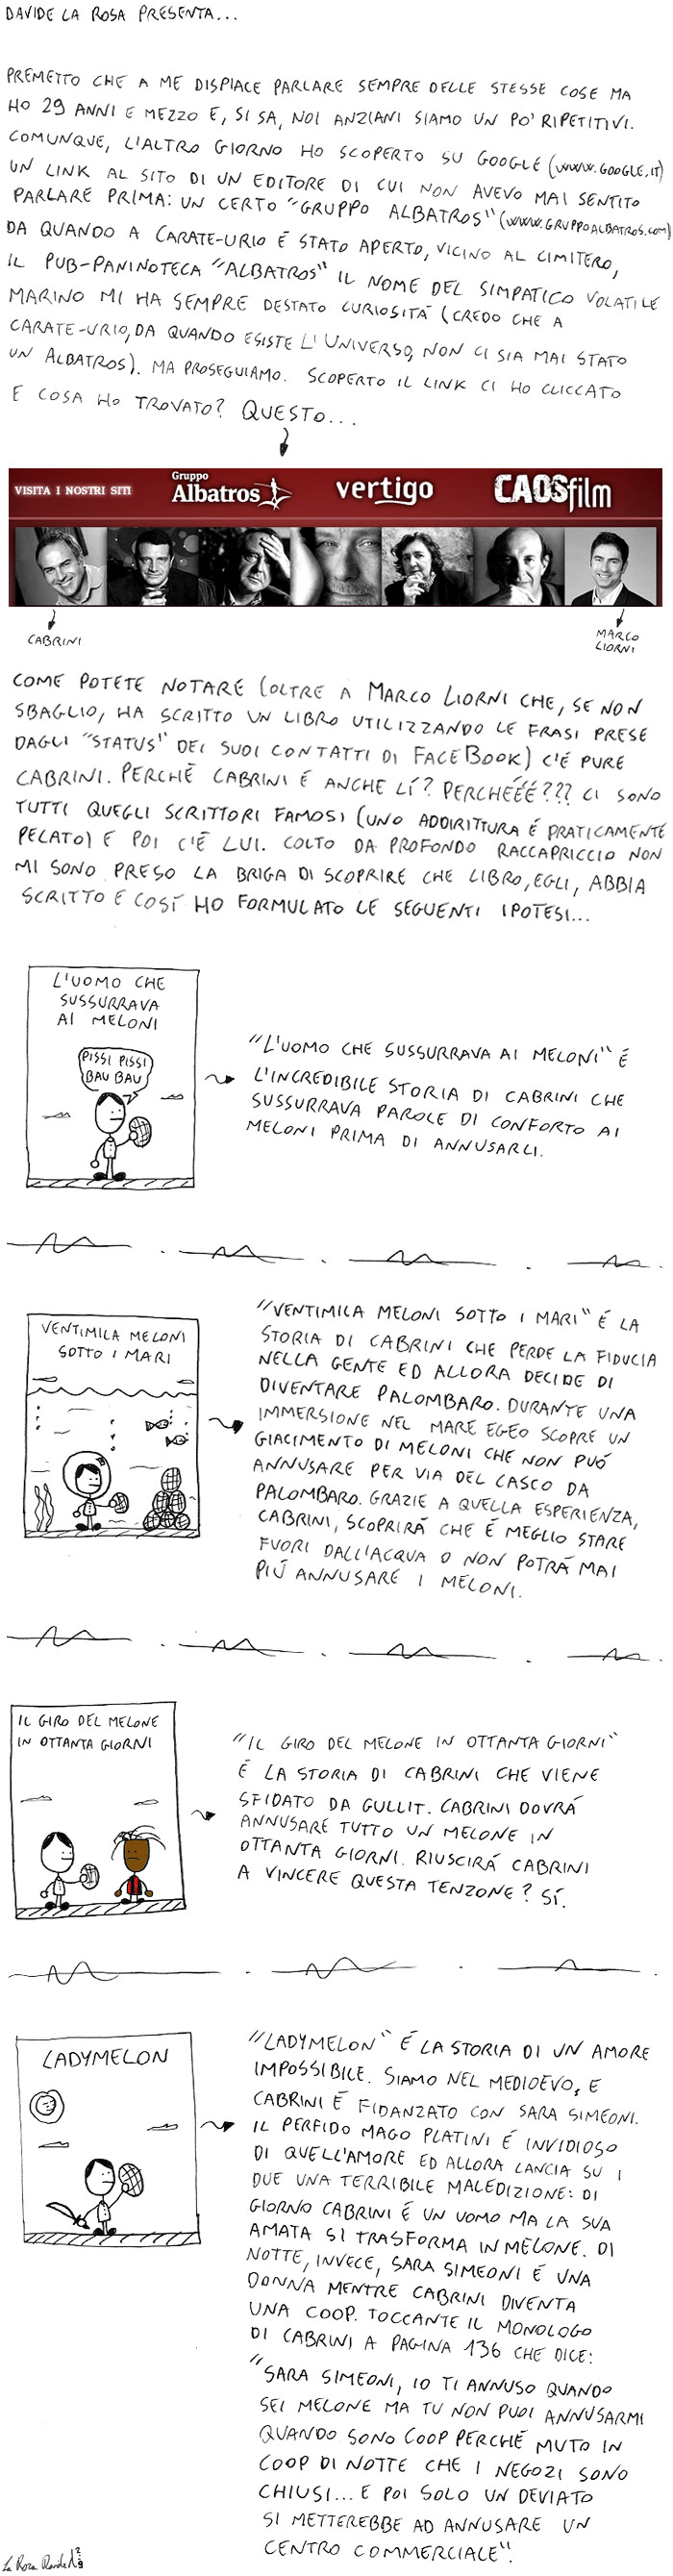 DAVIDE LA ROSA PRESENTA...
PREMETTO CHE A ME DISPIACE PARLARE SEMPRE DELLE STESSE COSE MA
HO 29 ANNI E MEZZO E, SI SA, NOI ANZIANI SIAMO UN PO' RIPETITIVI.
COMUNQUE, L'ALTRO GIORNO HO SCOPERTO SU GOOGLE (WWW.GOOGLE.IT)
UN LINK AL SITO DI UN EDITORE DI CUI NON AVEVO MAI SENTITO
PARLARE PRIMA: UN CERTO "GRUPPO ALBATROS" (WWW.GRUPPOALBATROS.COM)
DA QUANDO A CARATE-URIO É STATO APERTO, VICINO AL CIMITERO,
IL PUB-PANINOTECA "ALBATROS" IL NOME DEL SIMPATICO VOLATILE
MARINO MI HA SEMPRE DESTATO CURIOSITÁ (CREDO CHE A
CARATE-URIO, DA QUANDO ESISTE L'UNIVERSO, NON CI SIA MAI STATO
UN ALBATROS). MA PROSEGUIAMO. SCOPERTO IL LINK CI HO CLICCATO
E COSA HO TROVATO? QUESTO...
VISITA I NOSTRI SITI
Gruppo
Albatros
vertigo
CAOSfilm
CABRINI
MARCO
LIORNI
COME POTETE NOTARE (OLTRE A MARCO LIORNI CHE, SE NON
SBAGLIO, HA SCRITTO UN LIBRO UTILIZZANDO LE FRASI PRESE
DAGLI "STATUS" DEI SUOI CONTATTI DI FACEBOOK) C'É PURE
CABRINI. PERCHÉ CABRINI É ANCHE LÍ? PERCHÉÉÉ??? CI SONO
TUTTI QUEGLI SCRITTORI FAMOSI (UNO ADDIRITTURA É PRATICAMENTE
PELATO) E POI C'É LUI. COLTO DA PROFONDO RACCAPRICCIO NON
MI SONO PRESO LA BRIGA DI SCOPRIRE CHE LIBRO, EGLI, ABBIA
SCRITTO E COSÍ HO FORMULATO LE SEGUENTI IPOTESI...
L'UOMO CHE
SUSSURRAVA
AI MELONI
PISSI PISSI
BAU BAU
"L'UOMO CHE SUSSURRAVA AI MELONI" É
L'INCREDIBILE STORIA DI CABRINI CHE
SUSSURRAVA PAROLE DI CONFORTO AI
MELONI PRIMA DI ANNUSARLI.
VENTIMILA MELONI
SOTTO I MARI
"VENTIMILA MELONI SOTTO I MARI" É LA
STORIA DI CABRINI CHE PERDE LA FIDUCIA
NELLA GENTE ED ALLORA DECIDE DI
DIVENTARE PALOMBARO. DURANTE UNA
IMMERSIONE NEL MARE EGEO SCOPRE UN
GIACIMENTO DI MELONI CHE NON PUÓ
ANNUSARE PER VIA DEL CASCO DA
PALOMBARO. GRAZIE A QUELLA ESPERIENZA,
CABRINI, SCOPRIRÁ CHE É MEGLIO STARE
FUORI DALL'ACQUA O NON POTRÁ MAI
PIÚ ANNUSARE I MELONI.
IL GIRO DEL MELONE
IN OTTANTA GIORNI
"IL GIRO DEL MELONE IN OTTANTA GIORNI"
É LA STORIA DI CABRINI CHE VIENE
SFIDATO DA GULLIT. CABRINI DOVRÁ
ANNUSARE TUTTO UN MELONE IN
OTTANTA GIORNI. RIUSCIRÁ CABRINI
A VINCERE QUESTA TENZONE? SÍ.
LADYMELON
"LADYMELON" É LA STORIA DI UN AMORE
IMPOSSIBILE. SIAMO NEL MEDIOEVO, E
CABRINI É FIDANZATO CON SARA SIMEONI.
IL PERFIDO MAGO PLATINI É INVIDIOSO
DI QUELL'AMORE ED ALLORA LANCIA SU I
DUE UNA TERRIBILE MALEDIZIONE: DI
GIORNO CABRINI É UN UOMO MA LA SUA
AMATA SI TRASFORMA IN MELONE. DI
NOTTE, INVECE, SARA SIMEONI É UNA
DONNA MENTRE CABRINI DIVENTA
UNA COOP. TOCCANTE IL MONOLOGO
DI CABRINI A PAGINA 136 CHE DICE:
"SARA SIMEONI, IO TI ANNUSO QUANDO
SEI MELONE MA TU NON PUOI ANNUSARMI
QUANDO SONO COOP PERCHÉ MUTO IN
COOP DI NOTTE CHE I NEGOZI SONO
CHIUSI... E POI SOLO UN DEVIATO
SI METTEREBBE AD ANNUSARE UN
CENTRO COMMERCIALE".
La Rosa Davide